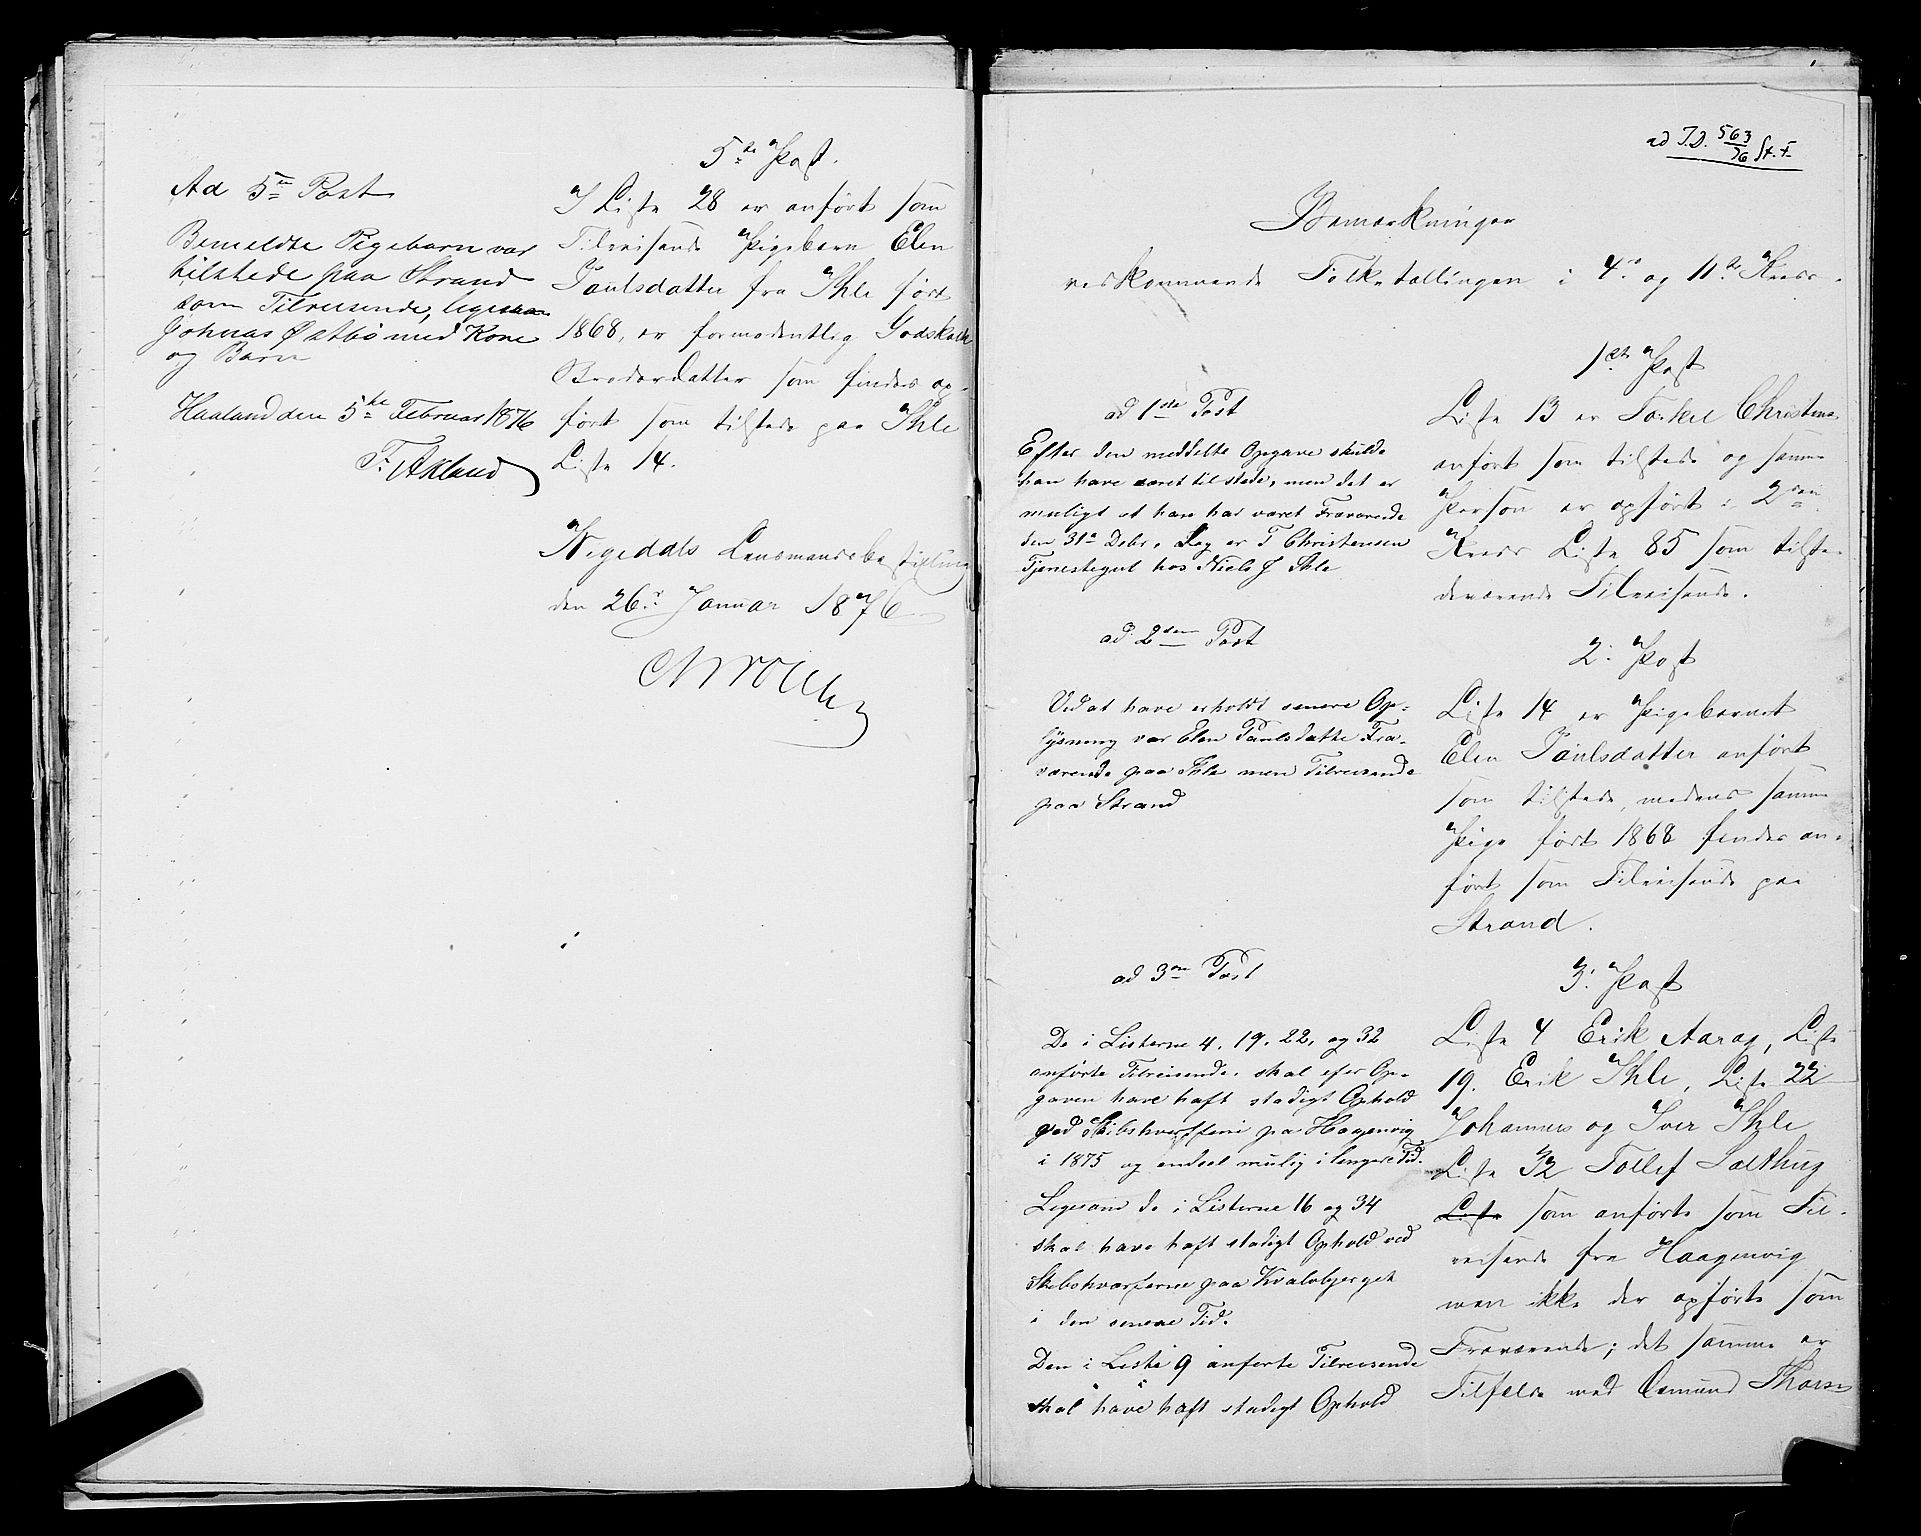 5te Post.
I Liste 28 er anført som
Tilreisende Pigebarn Elen
Paulsdatter fra Ihle født
1868, er formodentlig Godskalk
Broderdatter som findes op-
ført som tilstede paa Ihle
Liste 14.
den 26de Januar 1876
Ad 5te Post
Bemeldte Pigebarn var
tilstede paa Strand
som Tilreisende, ligesaa
Johnas Østbø med Kone
og Barn
Haaland den 5te Februar 1876
ad J.D. 563/76 St. F.
Bemærkninger
vedkommende Folketællingen i 4de og 11te Kreds.
1ste Post
Liste 13 er Torkel Christens
anført som tilstede og samme
Person er opført i 2den
Kreds Liste 85 som tilste-
deværende Tilreisende.
2. Post
Liste 14 er Pigebarnet
Elen Paulsdatter anført
som tilstede, medens samme
Pige født 1868 findes an-
ført som Tilreisende paa
Strand.
3. Post
Liste 4 Erik Aarag, Liste
19. Erik Ihle, Liste 22
Johannes og Iver Ihle
Liste 32 Tollef
Liste som anførte som Til-
reisende fra Haagenvig
men ikke der opførte som
Fraværende; det samme er
Tilfælde med Osmund
ad 1ste Post
Efter den meddelte Opgave skulde
han have været tilstede, men det er
muligt at han har været Fraværende
den 31te Debr. er T Christensen
Tjenestegut hos Niels J Ihle
ad 2den Post
Ved at have erholdt senere Op-
lysning var Elen Paulsdatte Fra-
værende paa Ihle men Tilreisende
paa Strand
ad 3die Post
De i Listerne 4, 19, 22, og 32
anførte Tilreisende, skal efter Op-
gaven have haft stadigt Ophold
ved Skibshverfterne paa Hagenvig
i 1875 og endeel mulig i længere Tid.
Ligesaa de i Listerne 16 og 34
skal have haft stadigt Ophold ved
Skibshværfterne paa Kvalvbjerget
i den senere Tid.
Den i Liste 9 anførte Tilreisende
skal have haft stadigt Ophold